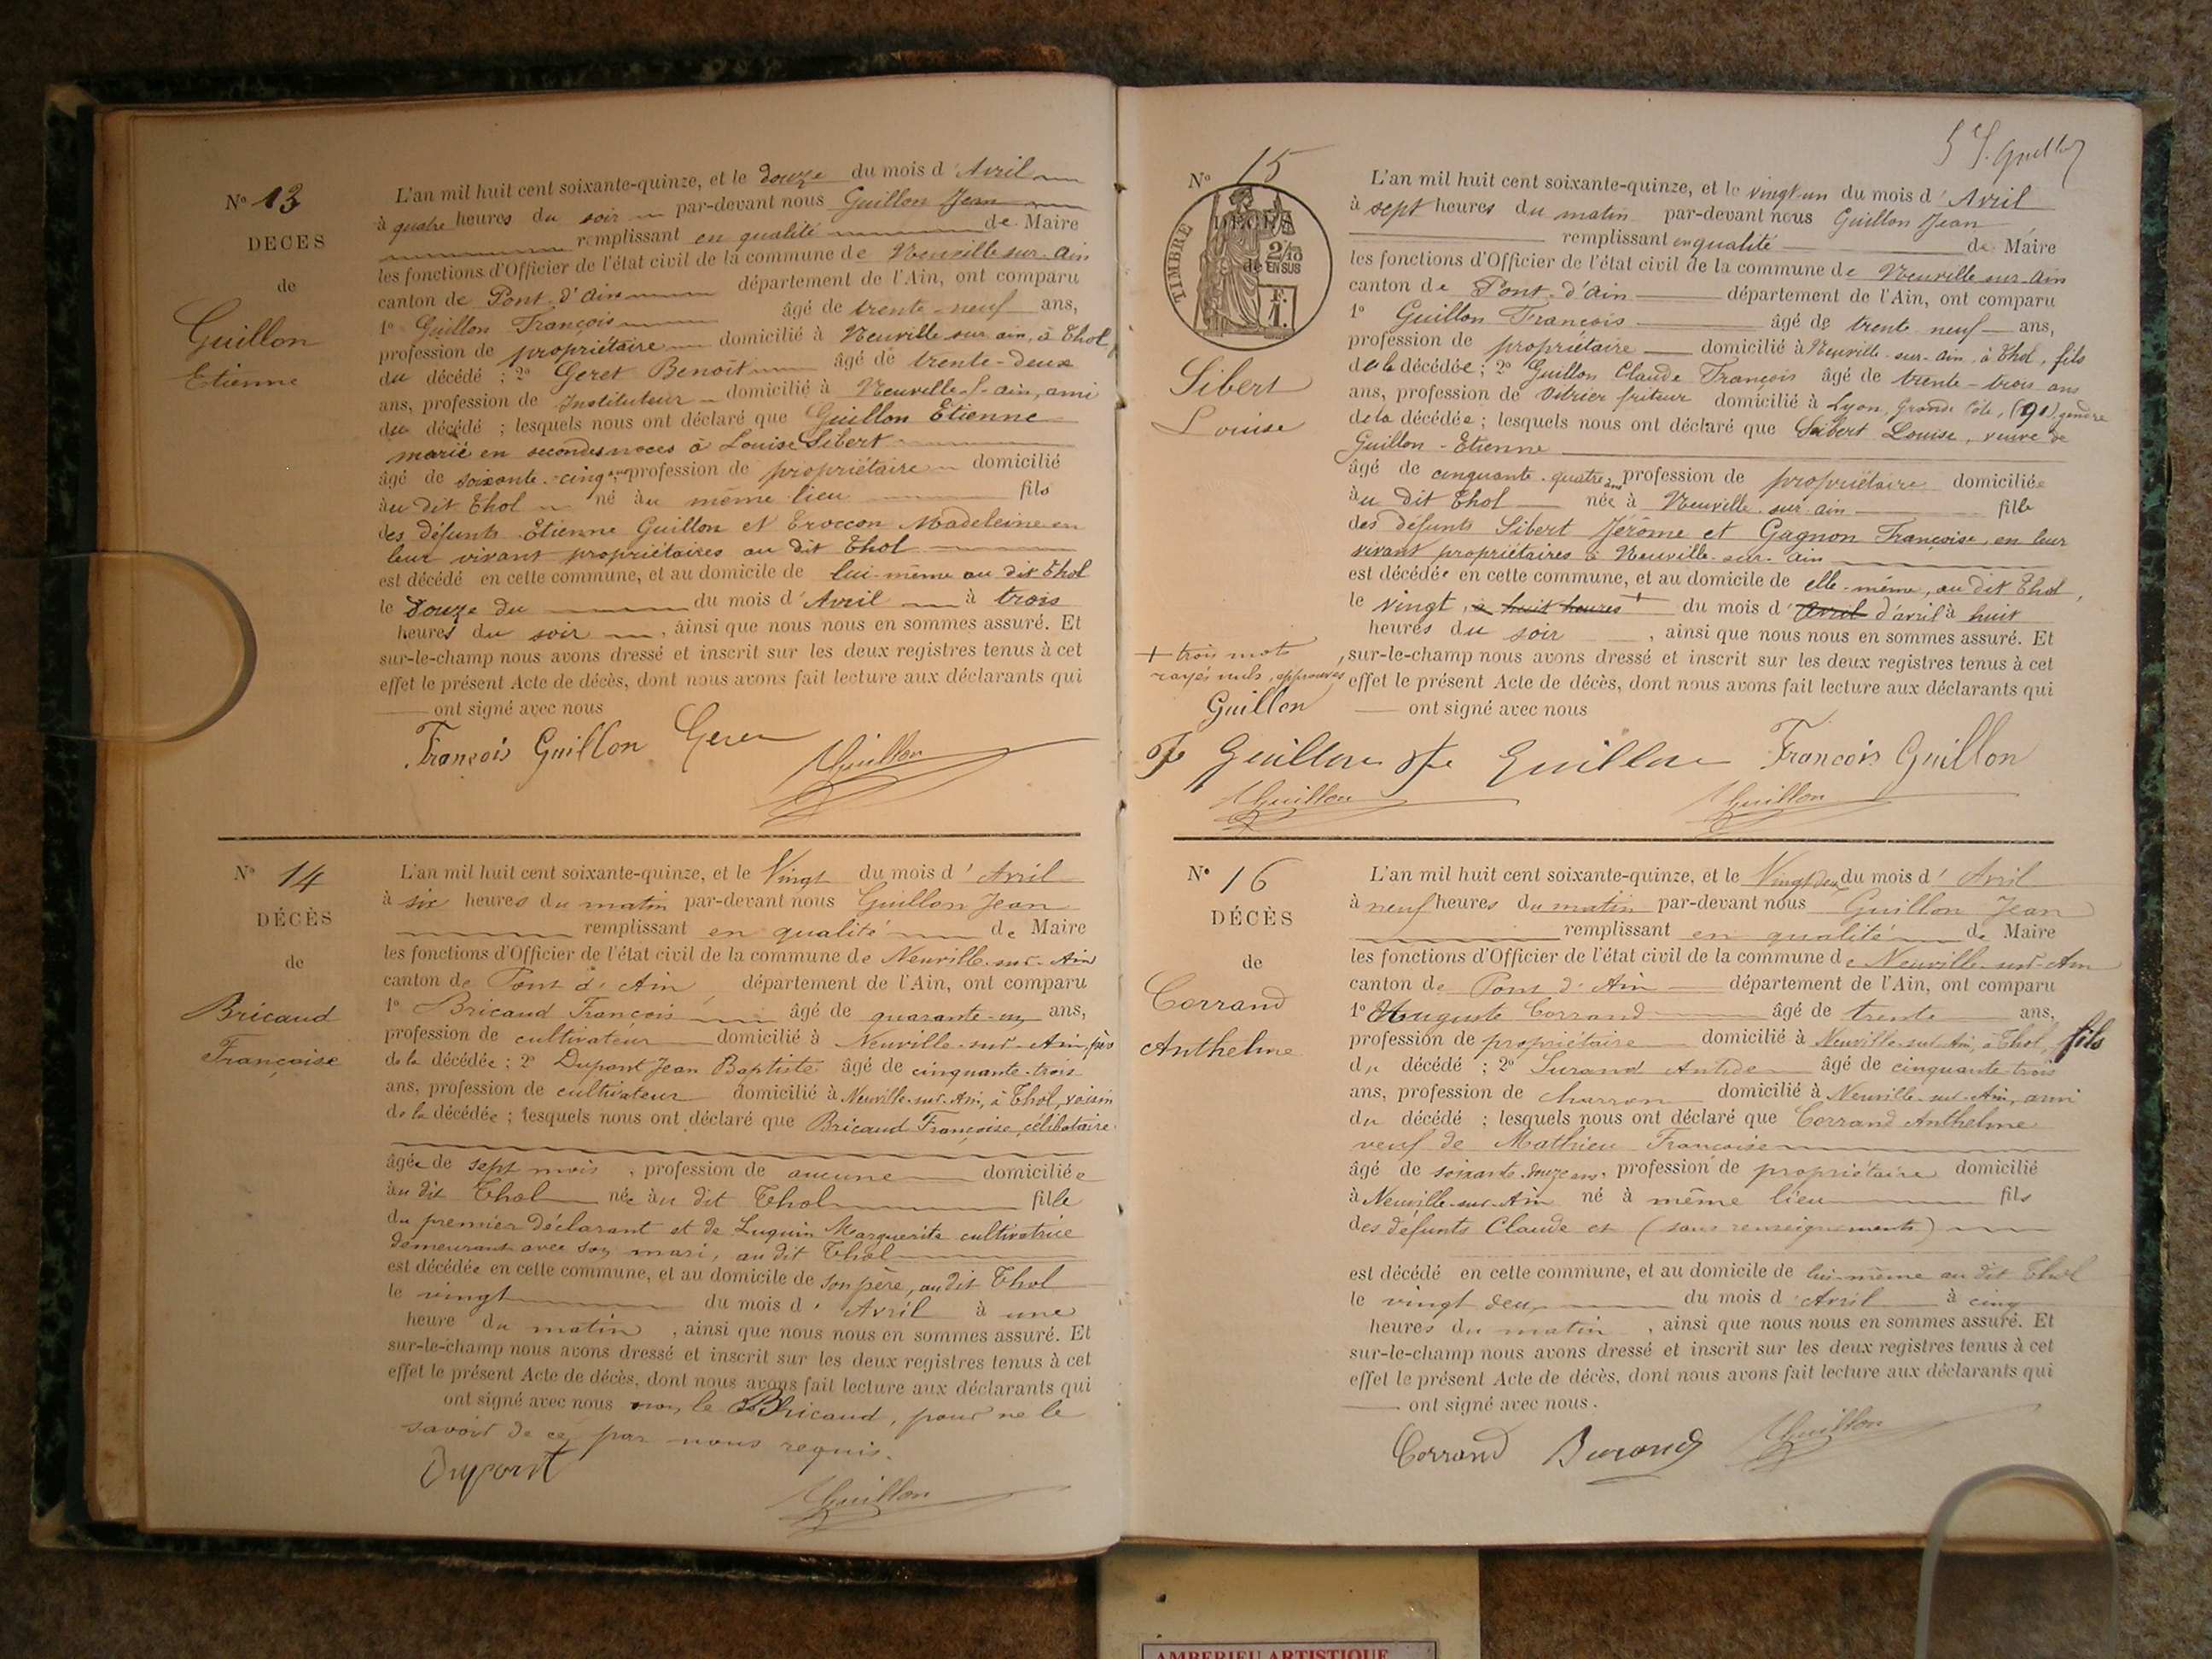 N° 13
DÉCÈS
de
Guillon
Etienne
L'an mil huit cent soixante-quinze, et le douze du mois d'Avril
à quatre heures du soir par-devant nous Guillon Jean
remplissant en qualité de Maire
les fonctions d'Officier de l'état civil de la commune de Neuville sur ain
canton de Pont d'ain département de l'Ain, ont comparu
1° Guillon François âgé de trente-neuf ans,
profession de propriétaire domicilié à Neuville sur ain, à Thol,
du décédé ; 2° Geret Benoit âgé de trente-deux
ans, profession de Instituteur domicilié à Neuville-s-ain, ami
du décédé ; lesquels nous ont déclaré que Guillon Etienne
marié en secondes noces à Louise Sibert
âgé de soixante-cinq ans profession de propriétaire domicilié
au dit Thol né au même lieu fils
des défunts Etienne Guillon et Troccon Madeleine en
leur vivant propriétaires au dit Thol
est décédé en cette commune, et au domicile de lui-même au dit Thol
le douze du du mois d'Avril à trois
heures du soir, ainsi que nous nous en sommes assuré. Et
sur-le-champ nous avons dressé et inscrit sur les deux registres tenus à cet
effet le présent Acte de décès, dont nous avons fait lecture aux déclarants qui
ont signé avec nous
François Guillon Geret Guillon
N° 14
DÉCÈS
de
Bricaud
Françoise
L'an mil huit cent soixante-quinze, et le Vingt du mois d'Avril
à six heures du matin par-devant nous Guillon Jean
remplissant en qualité de Maire
les fonctions d'Officier de l'état civil de la commune de Neuville-sur-Ain
canton de Pont d'Ain, département de l'Ain, ont comparu
1° Bricaud François âgé de quarante-un ans,
profession de cultivateur domicilié à Neuville-sur-Ain, père
de la décédée ; 2° Dupont Jean Baptiste âgé de cinquante-trois
ans, profession de cultivateur domicilié à Neuville-sur-Ain, à Thol, voisin
de la décédée ; lesquels nous ont déclaré que Bricaud Françoise, célibataire
âgée de sept mois, profession de aucune domiciliée
au dit Thol née au dit Thol fille
du premier déclarant et de Luquin Marguerite cultivatrice
demeurant avec son mari, au dit Thol
est décédée en cette commune, et au domicile de son père, au dit Thol
le vingt du mois d'Avril à une
heure du matin, ainsi que nous nous en sommes assuré. Et
sur-le-champ nous avons dressé et inscrit sur les deux registres tenus à cet
effet le présent Acte de décès, dont nous avons fait lecture aux déclarants qui
ont signé avec nous non le Bricaud, pour ne le
savoir de ce par nous requis.
Dupont
Guillon
N° 15
DÉCÈS
de
TIMBRE
2/10
EN SUS
F.
1.
Sibert
Louise
L'an mil huit cent soixante-quinze, et le vingt-un du mois d'Avril
à sept heures du matin par-devant nous Guillon Jean
remplissant en qualité de Maire
les fonctions d'Officier de l'état civil de la commune de Neuville sur-Ain
canton de Pont-d'ain département de l'Ain, ont comparu
1° Guillon François âgé de trente neuf ans,
profession de propriétaire domicilié à Neuville-sur-ain, à Thol, fils
de la décédée ; 2° Guillon Claude François âgé de trente-trois ans
ans, profession de domicilié à Lyon, Grande Côte, (91) gendre
de la décédée ; lesquels nous ont déclaré que Sibert Louise, veuve de
Guillon-Etienne
âgé de cinquante-quatre ans profession de propriétaire domiciliée
au dit Thol née à Neuville-sur-ain fille
des défunts Sibert Jérôme et Gagnon Françoise, en leur
vivant propriétaires à Neuville-sur-Ain
est décédée en cette commune, et au domicile de elle-même, au dit Thol,
le vingt, à huit heures + du mois d'Avril d'avril à huit
heures du soir, ainsi que nous nous en sommes assuré. Et
sur-le-champ nous avons dressé et inscrit sur les deux registres tenus à cet
effet le présent Acte de décès, dont nous avons fait lecture aux déclarants qui
ont signé avec nous
+ trois mots
rayés nuls, approuvés
Guillon
Guillon Guillon François Guillon
Guillon Guillon
N° 16
DÉCÈS
de
Corrand
Anthelme
L'an mil huit cent soixante-quinze, et le Vingt deux du mois d'Avril
à neuf heures du matin par-devant nous Guillon Jean
remplissant en qualité de Maire
les fonctions d'Officier de l'état civil de la commune de Neuville-sur-Ain
canton de Pont d'Ain département de l'Ain, ont comparu
1° Auguste Corrand âgé de trente ans,
profession de propriétaire domicilié à Neuville-sur-Ain, à Thol, fils
du décédé ; 2° Durand Antide âgé de cinquante-trois
ans, profession de charron domicilié à Neuville-sur-Ain, ami
du décédé ; lesquels nous ont déclaré que Corrand Anthelme
veuf de Mathieu Françoise
âgé de soixante-douze ans, profession de propriétaire domicilié
à Neuville-sur-Ain né à même lieu fils
des défunts Claude et (sans renseignements)
est décédé en cette commune, et au domicile de lui-même au dit Thol
le vingt deux du mois d'Avril à cinq
heures du matin, ainsi que nous nous en sommes assuré. Et
sur-le-champ nous avons dressé et inscrit sur les deux registres tenus à cet
effet le présent Acte de décès, dont nous avons fait lecture aux déclarants qui
ont signé avec nous.
Corrand Durand Guillon
AMBERIEU ARTISTIQUE